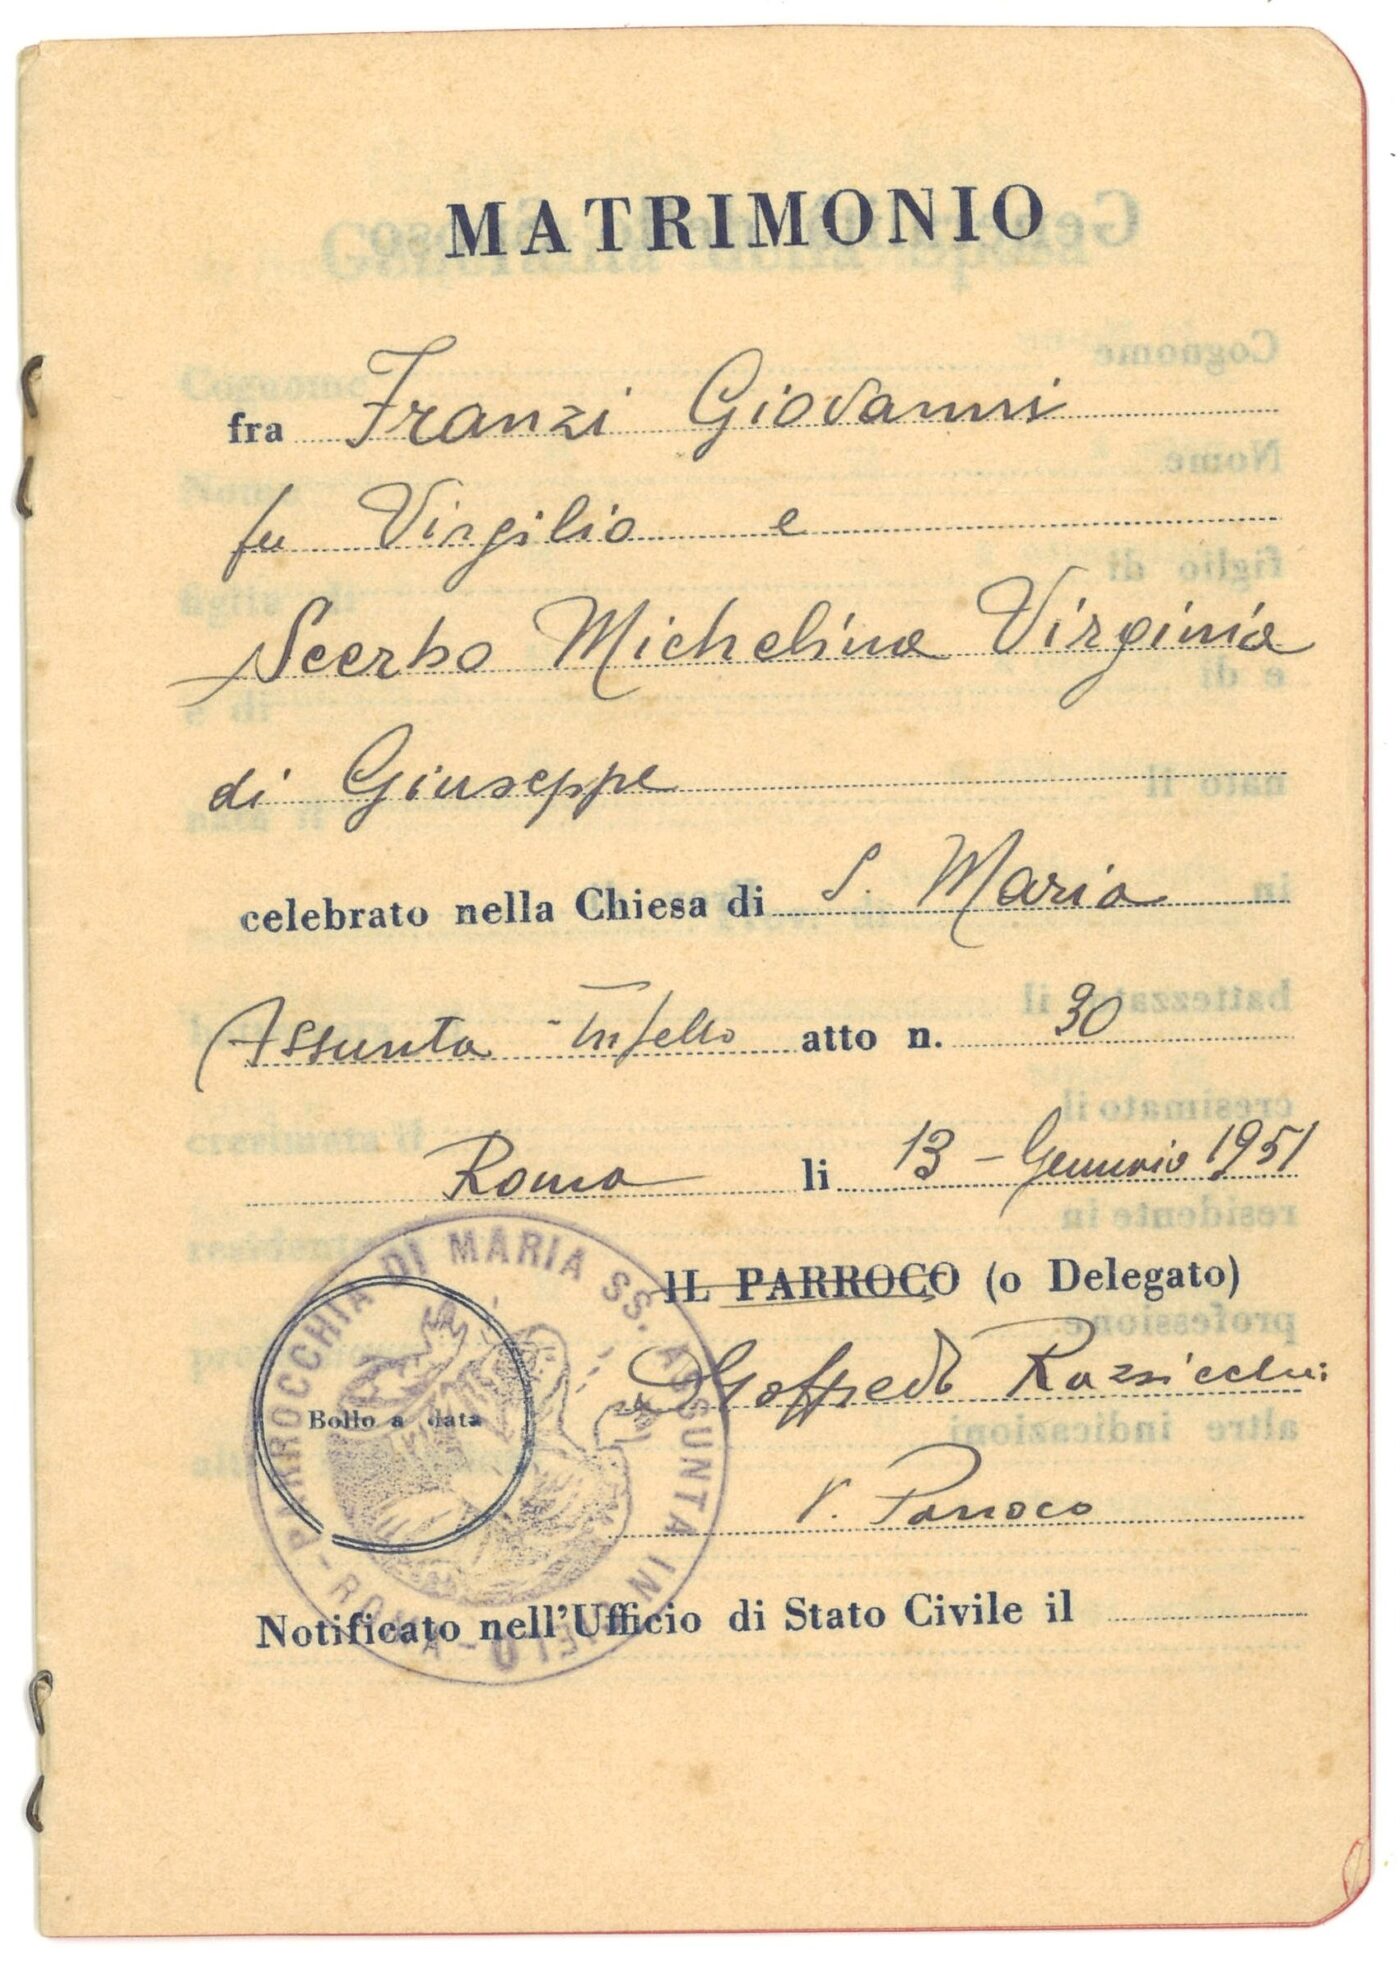 MATRIMONIO
fra Franzi Giovanni
fu Virgilio e
Scerbo Michelina Virginia
di Giuseppe
celebrato nella Chiesa di S. Maria
Assunta - Tufello atto n. 30
Roma li 13 - Gennaio 1951
IL PARROCO (o Delegato)
Goffredo
V. Parroco
Bollo a data
PARROCCHIA DI MARIA SS. ASSUNTA IN CIELO - ROMA -
Notificato nell'Ufficio di Stato Civile il